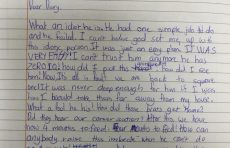 Dear Diary,
What an idiot he is. He had one simple job to do
and he failed. I can't believe god set me up with
this idiotic person. It was just an easy plan. IT WAS
VERY EASY! I can't trust him any more he has
ZERO IQ! how did I put the how did I see
him. Now its all is but we are back to square
one! It was never deep enough for him if I was
him I would take them far away from my house.
What a fool he is! how did those brats get home?
Did they hear our conversation? After this we have
now 4 mouths to feed. Four mouths to feed! how can
anybody when he can't do